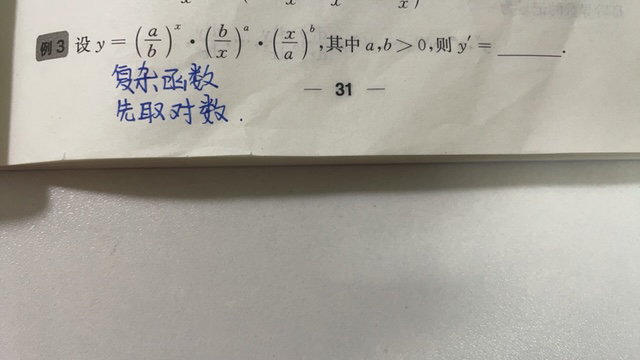 例3 设 y = (a/b)^x · (b/x)^a · (x/a)^b, 其中 a,b > 0, 则 y′ = ______.
复杂函数
先取对数.
— 31 —